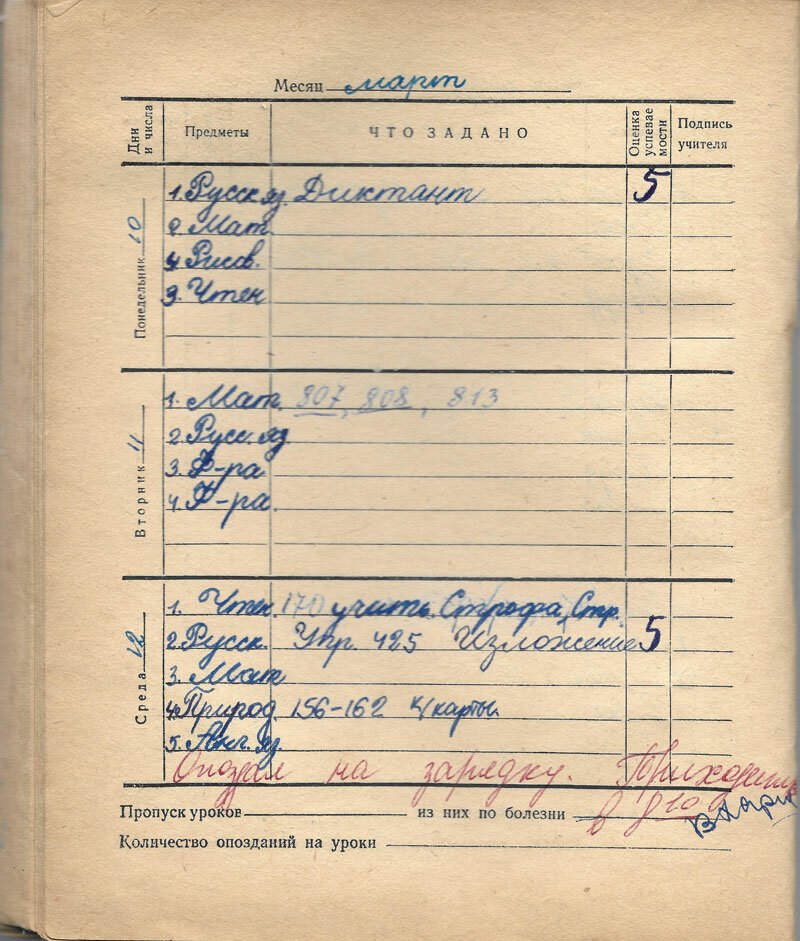 Месяц март
Дни и числа Предметы ЧТО ЗАДАНО Оценка успевае мости Подпись учителя
Понедельник 10
1. Русск яз. Диктант 5
2 Мат.
4 Рисов.
3. Чтен
Вторник 11
1. Мат. 807, 808, 813
2. Русс. яз
3. Ф-ра
4. Ф-ра.
Среда 12
1. Чтен. 170 учить. Строфа, Стр.
2. Русск. Упр. 425 Изложение 5
3. Мат
4. Природ. 156-162 к/карты.
5. Анг. яз.
Опоздал на зарядку. Приходить
в 8 10
Пропуск уроков из них по болезни
Количество опозданий на уроки